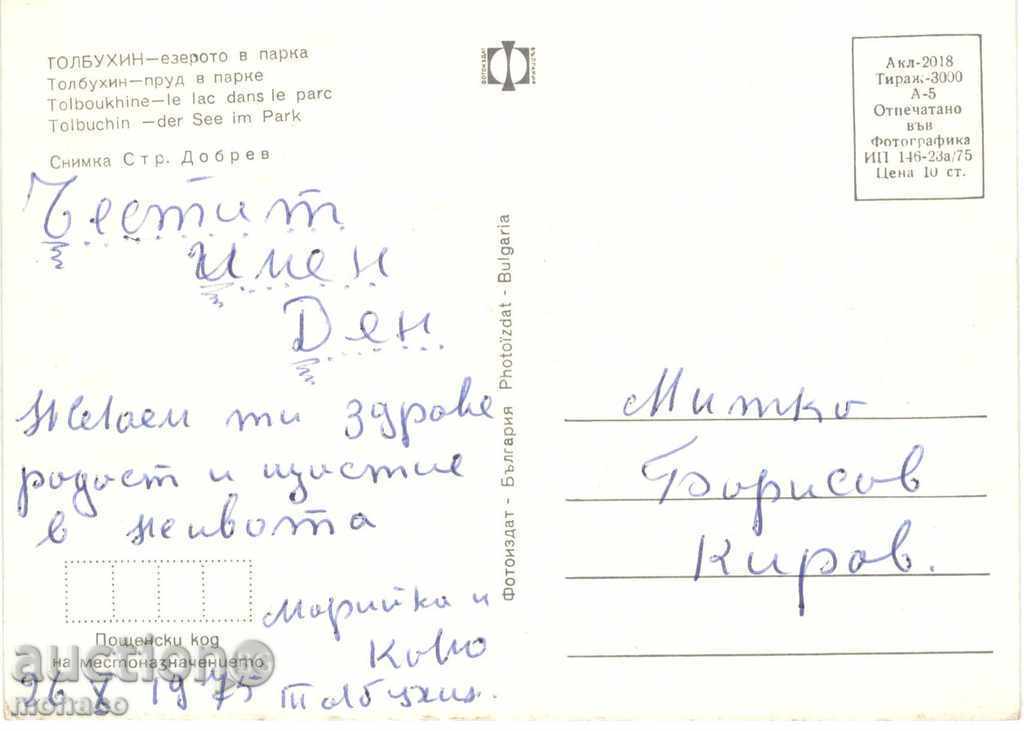 ТОЛБУХИН—езерото в парка
Толбухин—пруд в парке
Tolboukhine—le lac dans le parc
Tolbuchin —der See im Park
Снимка Стр. Добрев
Честит
Имен
Ден
Желаем ти здраве
радост и щастие
в живота
Марийка и
Коно
26 X 1975 Толбухин.
Пощенски код
на местоназначението
auction
mohaco
ФОТОИЗДАТ
Фотоиздат - България Photoïzdat - Bulgaria
Акл-2018
Тираж-3000
А-5
Отпечатано
във
Фотографика
ИП 146-23а/75
Цена 10 ст.
Митко
Борисов
Киров.